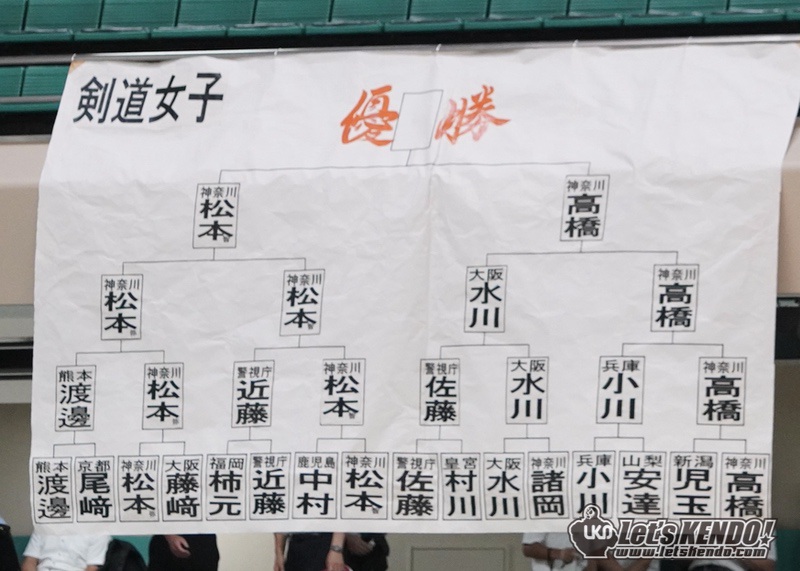 剣道女子
優 勝
神奈川 松本
神奈川 高橋
神奈川 松本
神奈川 松本
大阪 水川
神奈川 高橋
熊本 渡邊
神奈川 松本
警視庁 近藤
神奈川 松本
警視庁 佐藤
大阪 水川
兵庫 小川
神奈川 高橋
熊本 渡邊
京都 尾﨑
神奈川 松本
大阪 藤﨑
福岡 柿元
警視庁 近藤
鹿児島 中村
神奈川 松本
警視庁 佐藤
皇宮 村川
大阪 水川
神奈川 諸岡
兵庫 小川
山梨 安達
新潟 児玉
神奈川 高橋
LKD LET'S KENDO!
www.letskendo.com